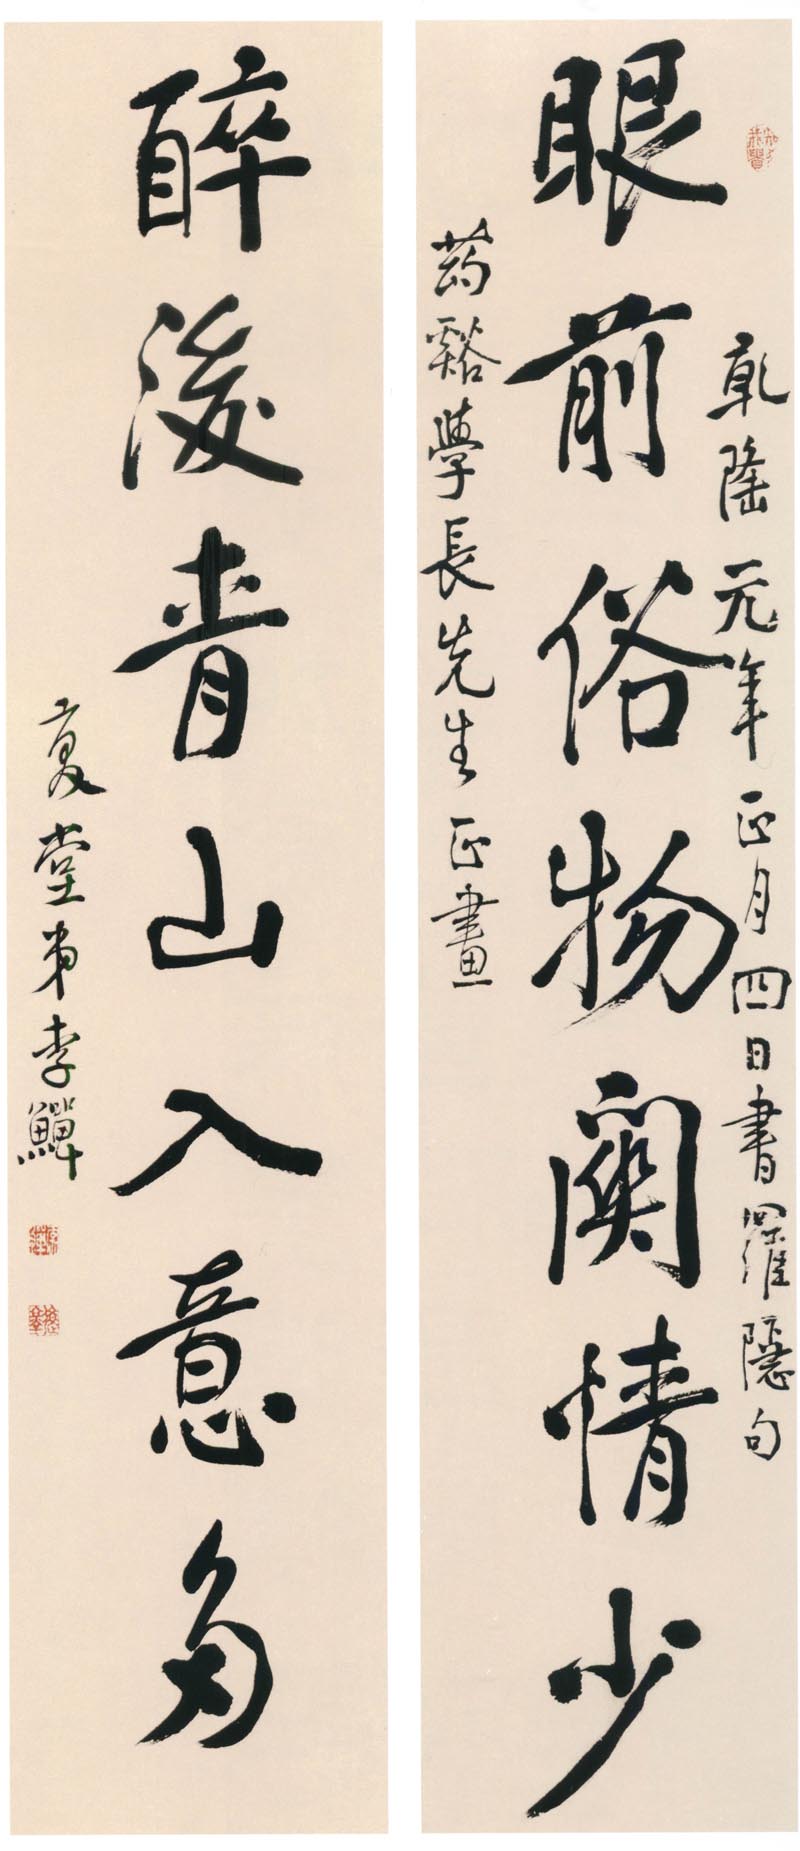 乾隆元年正月四日書羅隱句
眼前俗物關情少
谿學長先生正畫
醉後青山入意多
复堂弟李鱓